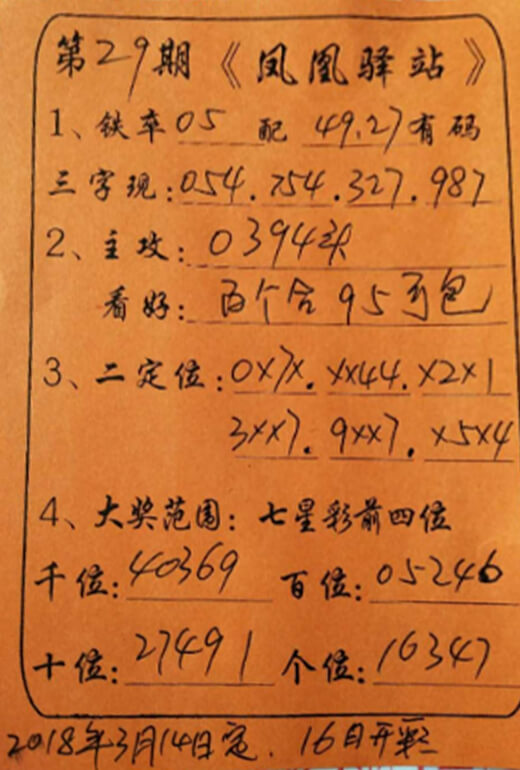 第29期《凤凰驿站》
1、铁卒05 配 49.27有码
三字现:054.754.327.987
2、主攻:0394球
看好:百个合95可包
3、二定位:0x7x.xx44.x2x1
3xx7.9xx7.x5x4
4、大奖范围:七星彩前四位
千位:40369 百位:05246
十位:27491 个位:16347
2018年3月14日定.16日开彩